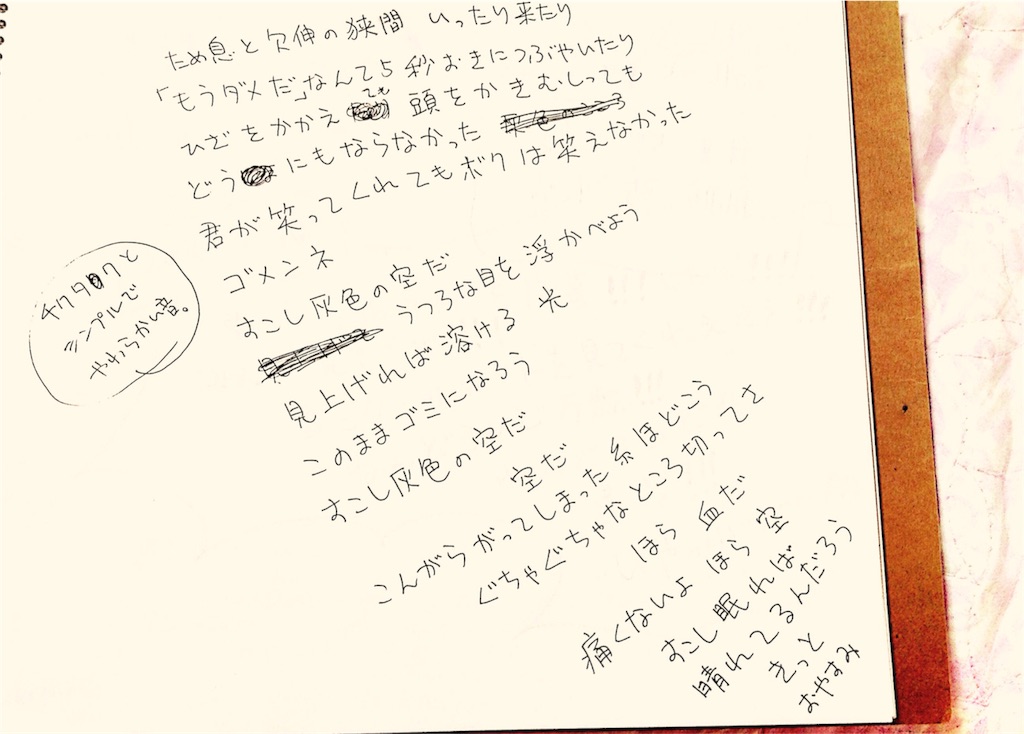 ため息と欠伸の狭間 いったり来たり
「もうダメだ」なんて5秒おきにつぶやいたり
ひざをかかえても 頭をかきむしっても
どうにもならなかった 灰色のうつろ
君が笑ってくれてもボクは笑えなかった
ゴメンネ
すこし灰色の空だ
うつろな目を浮かべよう
見上げれば溶ける 光
このままゴミになろう
すこし灰色の空だ
空だ
こんがらがってしまった糸ほどこう
ぐちゃぐちゃなところ切ってさ
ほら 血だ
痛くないよ ほら 空
すこし眠れば
晴れてるんだろう
きっと
おやすみ
チクタクと
シンプルで
やわらかい音。